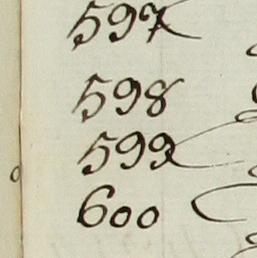 597
598
599
600